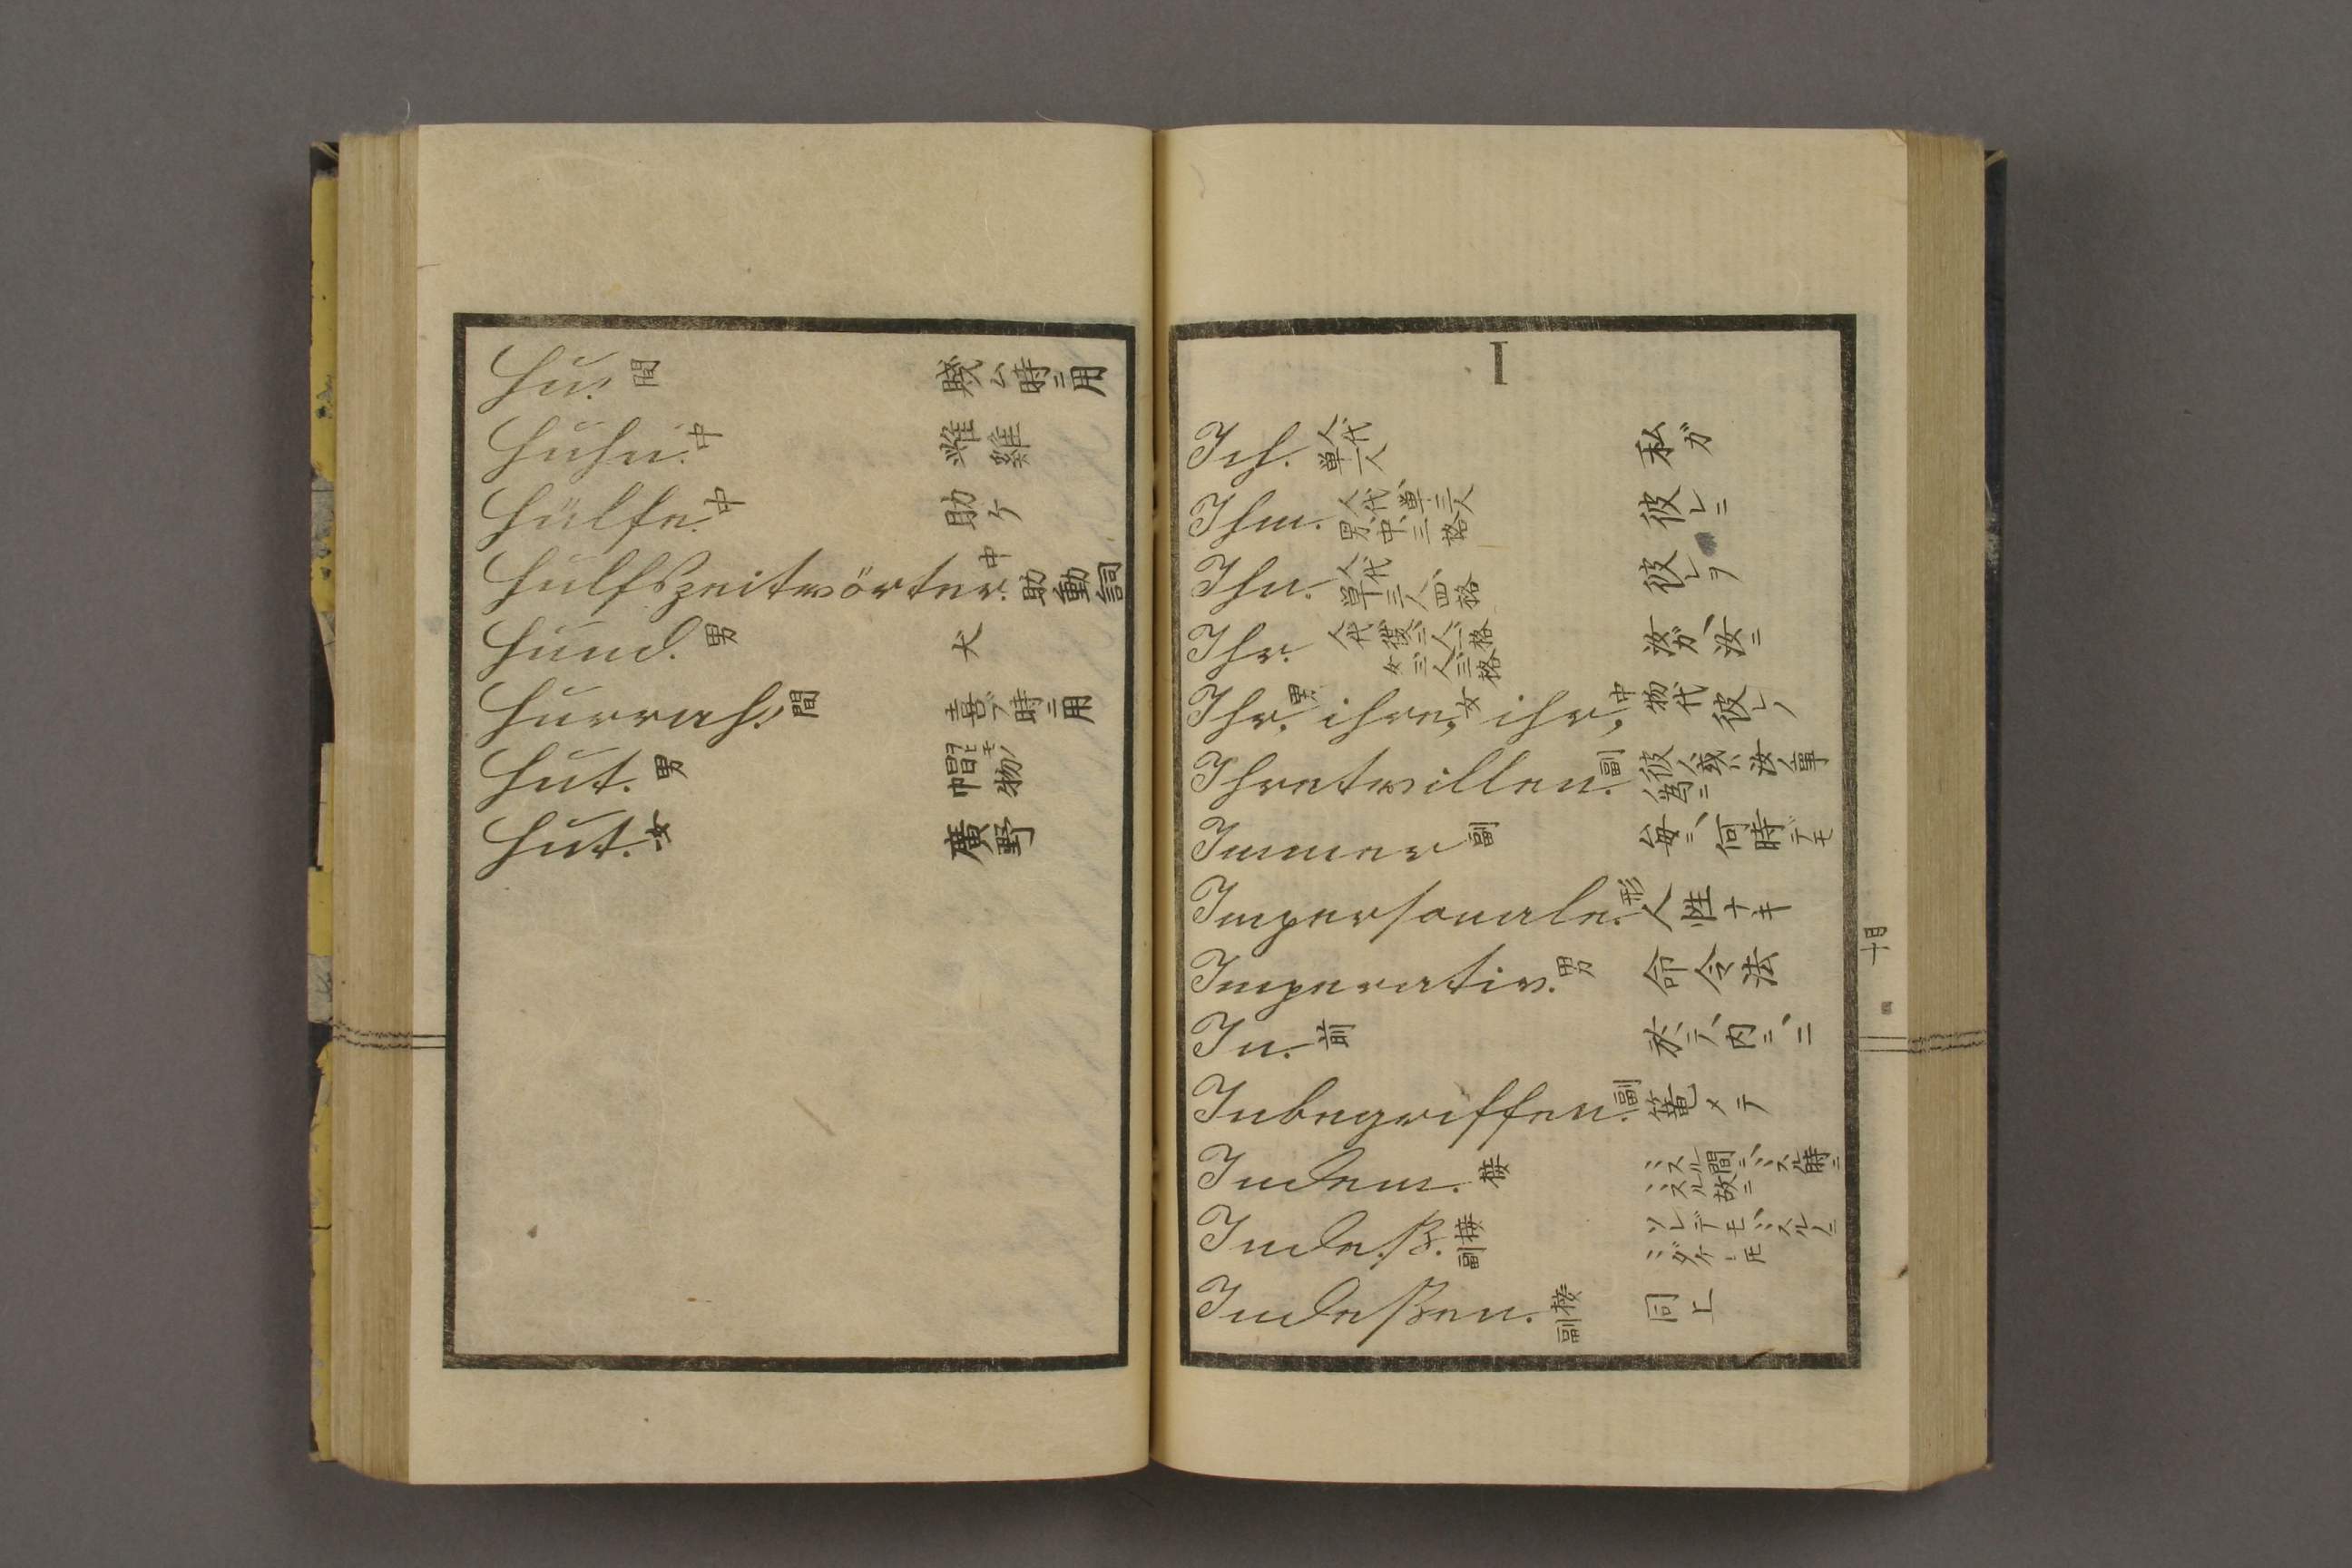 Hu! 間 賤ム時ニ用
Huhn. 中 雌雞
Hülfe. 中 助ケ
Hülfszeitwörter. 中 助動詞
Hund. 男 犬
Hurrah! 間 喜ブ時ニ用
Hut. 男 帽物
Hut. 女 廣野
I
Ich. 人代単一人 私ガ
Ihm. 人代、単三人男、中、三格 彼レニ
Ihn. 人代単三人四格 彼レヲ
Ihr. 人代 複ニ人一格 女三人三格 汝ガ、汝ニ
Ihr, 男 ihre, 女 ihr, 中 物代 彼レノ
Ihretwillen. 副 彼ノ或ハ汝ノ為ニ
Immer 副 毎ニ、何時デモ
Impersonale. 形 人性ナキ
Imperativ. 男 命令法
In. 前 於テ、内ニ、ニ
Inbegriffen. 副 篭メテ
Indem. 接 ミスル間ニ、ミスル時ニ ミスル故ニ
Indeß. 接副 ソレデモ、ミスルノニ ミダケレトモ
Indeßen. 接副 同上